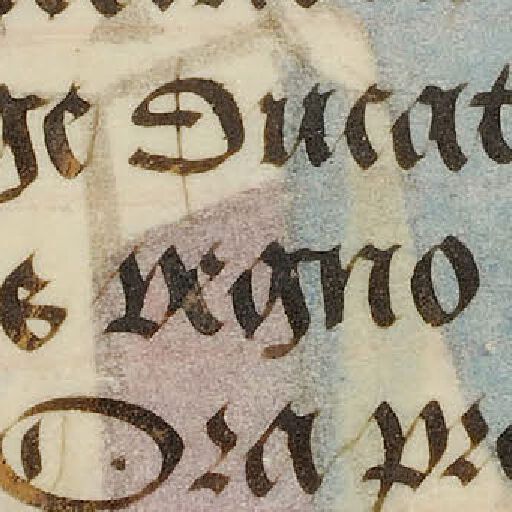 ge Ducat
e regno
Ora pro